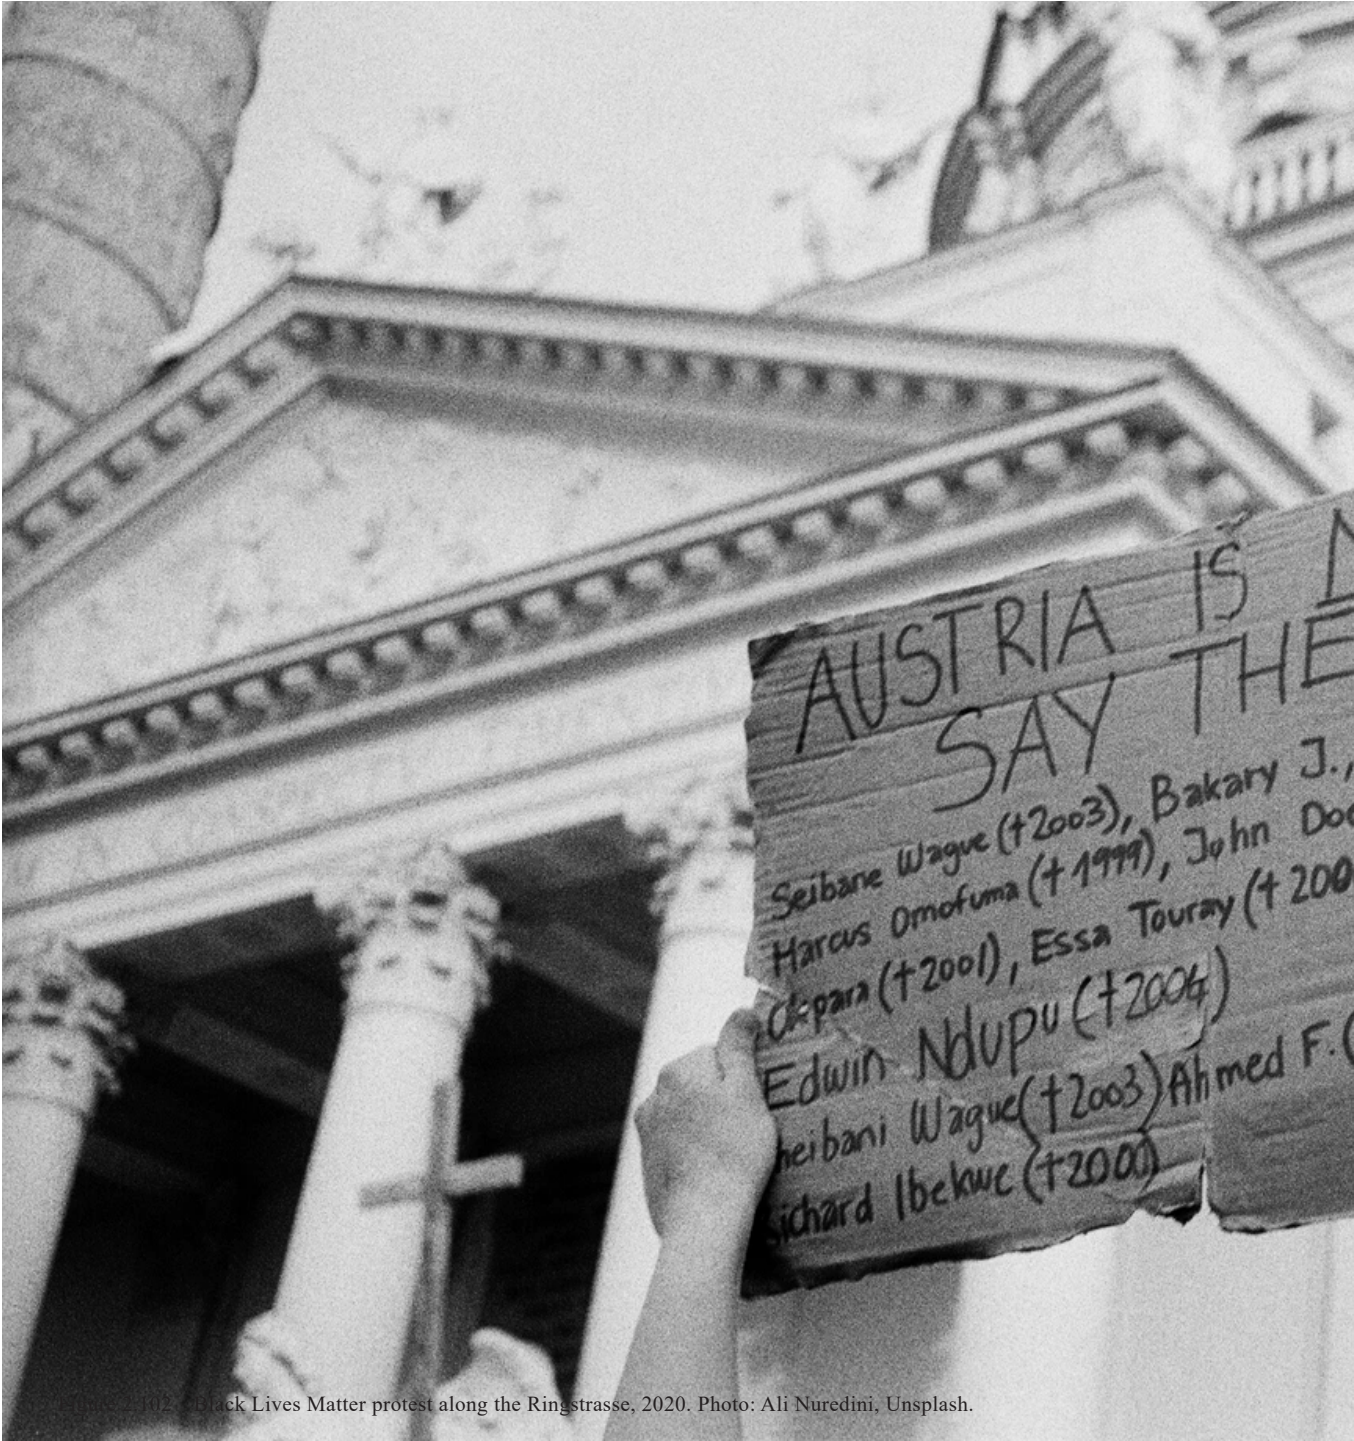 AUSTRIA IS
SAY THE
Seibane Wague (†2003), Bakary J.,
Marcus Omofuma (†1999), John Doe
Okpara (†2001), Essa Touray († 200
Edwin Ndupu (†2004)
heibani Wague (†2003) Ahmed F. (
Richard Ibekwe (†2000)
2.102 Black Lives Matter protest along the Ringstrasse, 2020. Photo: Ali Nuredini, Unsplash.